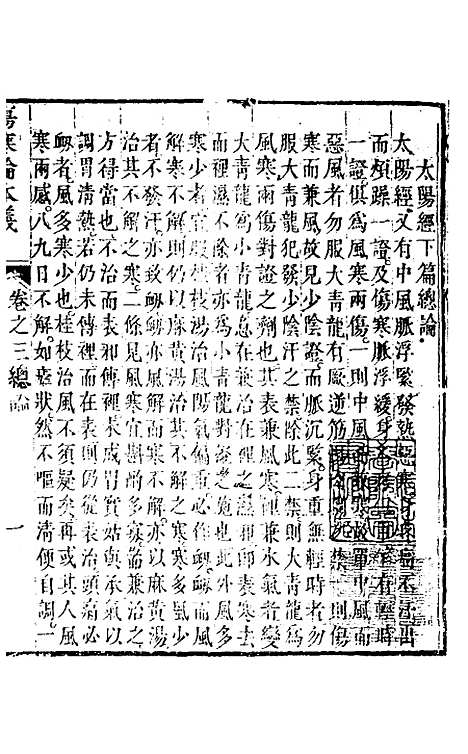 太陽經下篇總論
太陽經又有中風脈浮緊發熱惡寒身疼痛不汗出
而煩躁一證及傷寒脈浮緩身不疼但重乍有輕時
一證俱爲風寒兩傷一則中風而兼寒故冒中風而
惡風者勿服大青龍有厥逆筋惕肉瞤之禁一則傷
寒而兼風故見少陰證而脈沉緊身重無輕時者勿
服大青龍犯發少陰汗之禁除此二禁則大青龍爲
風寒兩傷對證之劑也其表兼風寒裡兼水氣者變
大青龍爲小青龍急在溫裡即表兼寒去
而裡濕不除者亦爲小青龍對證之施也此外風多
寒少者宜桂枝治風陽氣偏重必衂而風
解寒少仍不解者仍以麻黃湯治其不解之寒寒多風少
者不發汗亦致衂衂解而寒不解亦以麻黃湯
治其不解之寒二條見風寒宜斟酌多寡而兼治之
方得當也不治而表邪傳裡長成胃實姑與承氣以
調胃清熱若仍未傳裡而在表則仍從表治頭痛必
衂者風多寒少也桂枝治風不須疑矣再或其人風
寒兩感八九日不解如瘧狀然不嘔而清便自調一
傷寒論本義
卷之三總論
一